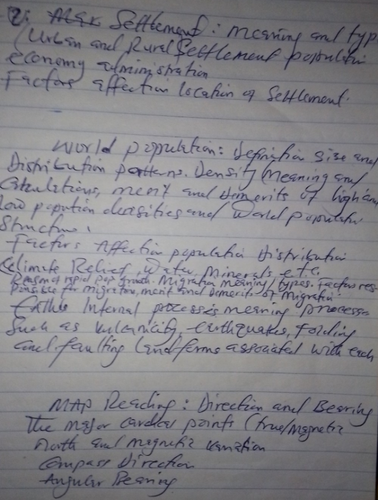 2. Settlement: meaning and typ
(Urban and Rural Settlement populatin
economy administration
Factors affection location of Settlement.
World population: definition size and
Distribution patterns. Density meaning and
Calculations, merit and demerits of high and
low popution densities and world populatin
Structure.
Factors Affection population Distribution
Climate Relief, Water, Minerals etc.
rapid pop growth Migration meaning, types, factors res
ponsible for migration, merit and demerits of migratin
Internal processes meaning processes
Such as vulcanicity, earthquakes, Folding
and faulting landforms associated with each
MAP Reading: Direction and Bearing
The major cardial points (true/magnetic
north and magnetic variation
Compass Direction
Angular Bearing